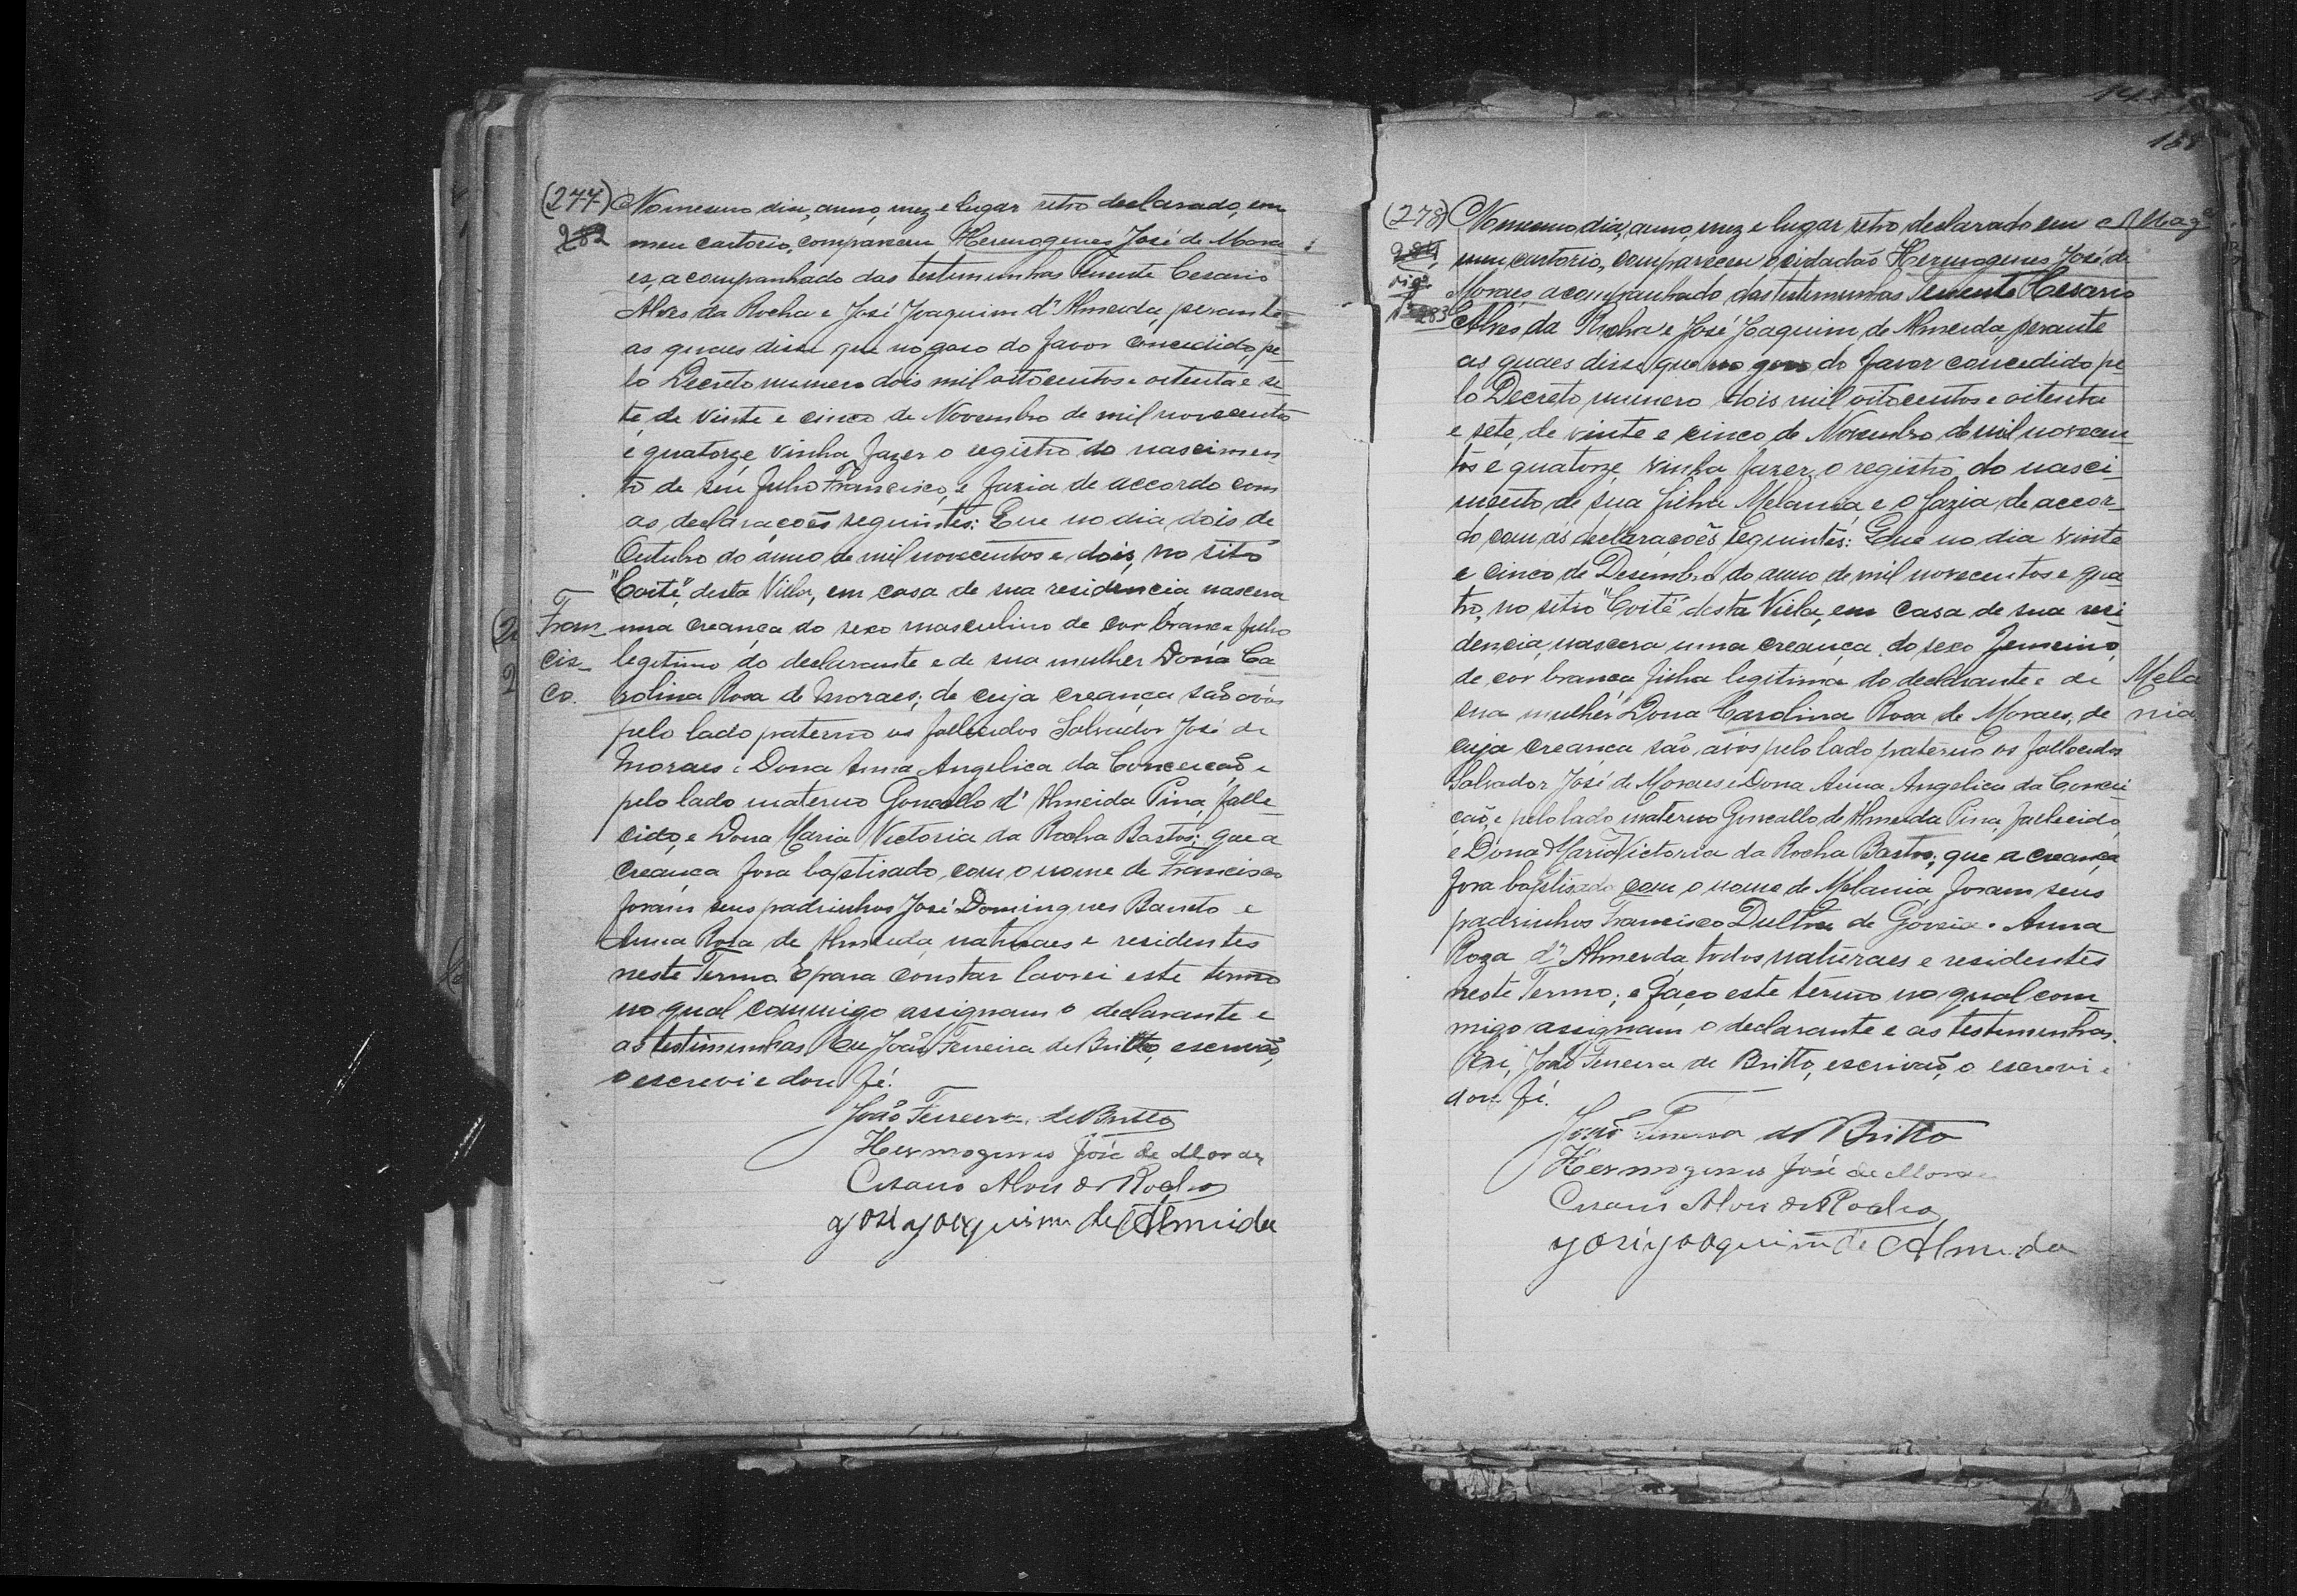 (277) No mesmo dia, anno, mez e lugar retro declarado, em
282 meu cartorio, compareceu Hermogenes José de Mora
es, acompanhado das testemunhas Tenente Cesario
Alves da Rocha e José Joaquim d'Almeida, perante
as quaes disse que no goso do favor concedido pe-
lo Decreto numero dois mil oitocentos e oitenta e se-
te de vinte e cinco de Novembro de mil novecentos
e quatorze vinha fazer o registro do nascimen-
to de seu filho Francisco, e fazia de accordo com
as declarações seguintes: Que no dia dois de
Outubro do anno de mil novecentos e dois, no sitio
"Coité", desta Villa, em casa de sua residencia nascera
Fran- uma creança do sexo masculino de cor branca filho
cis- legitimo do declarante e de sua mulher Dona Ca
co. rolina Rosa de Moraes; de cuja creança são avós
pelo lado paterno os fallecidos Salvador José de
Moraes e Dona Anna Angelica da Conceição e
pelo lado materno Goncallo d'Almeida Pina, falle-
cido, e Dona Maria Victoria da Rocha Bastos; que a
creança fora baptisado com o nome de Francisco
foram seus padrinhos José Domingues Barreto e
Anna Rosa de Almeida, naturaes e residentes
neste Termo. E para constar lavrei este termo
no qual commigo assignam o declarante e
as testemunhas. Eu João Ferreira de Britto, escrivão,
o escrevi e dou fé.
João Ferreira de Britto
Hermogenes José de Moraes
Cesario Alves da Rocha
José Joaquim de Almeida
188
(278) No mesmo dia, anno, mez e lugar retro declarado em
meu cartorio, compareceu o cidadão Hermogenes José de
Moraes acompanhado das testemunhas Tenente Cesario
283 Alves da Rocha e José Joaquim de Almeida, perante
as quaes disse que no goso do favor concedido pe-
lo Decreto numero dois mil oitocentos e oitenta
e sete, de vinte e cinco de Novembro de mil novecen-
tos e quatorze, vinha fazer o registro do nasci-
mento de sua filha Melania e o fazia de accor-
do com as declarações seguintes: Que no dia vinte
e cinco de Desembro do anno de mil novecentos e qua-
tro, no sitio "Coité" desta Villa, em casa de sua resi-
dencia, nascera uma creança do sexo femenino,
de cor branca filha legitima do declarante e de Mela
sua mulher Dona Carolina Rosa de Moraes, de nia.
cuja creança são avós pelo lado paterno os fallecidos
Salvador José de Moraes e Dona Anna Angelica da Concei-
ção, e pelo lado materno Goncallo de Almeida Pina, fallecido,
e Dona Maria Victoria da Rocha Bastos; que a creança
fora baptisada com o nome de Melania, foram seus
padrinhos Francisco Dultra de Góveia e Anna
Roza d'Almeida, todos naturaes e residentes
neste Termo; e faço este termo no qual com
migo assignam o declarante e as testemunhas.
Eu, João Ferreira de Britto, escrivão, o escrevi e
dou fé.
João Ferreira de Britto
Hermogenes José de Moraes
Cesario Alves da Rocha
José Joaquim de Almeida